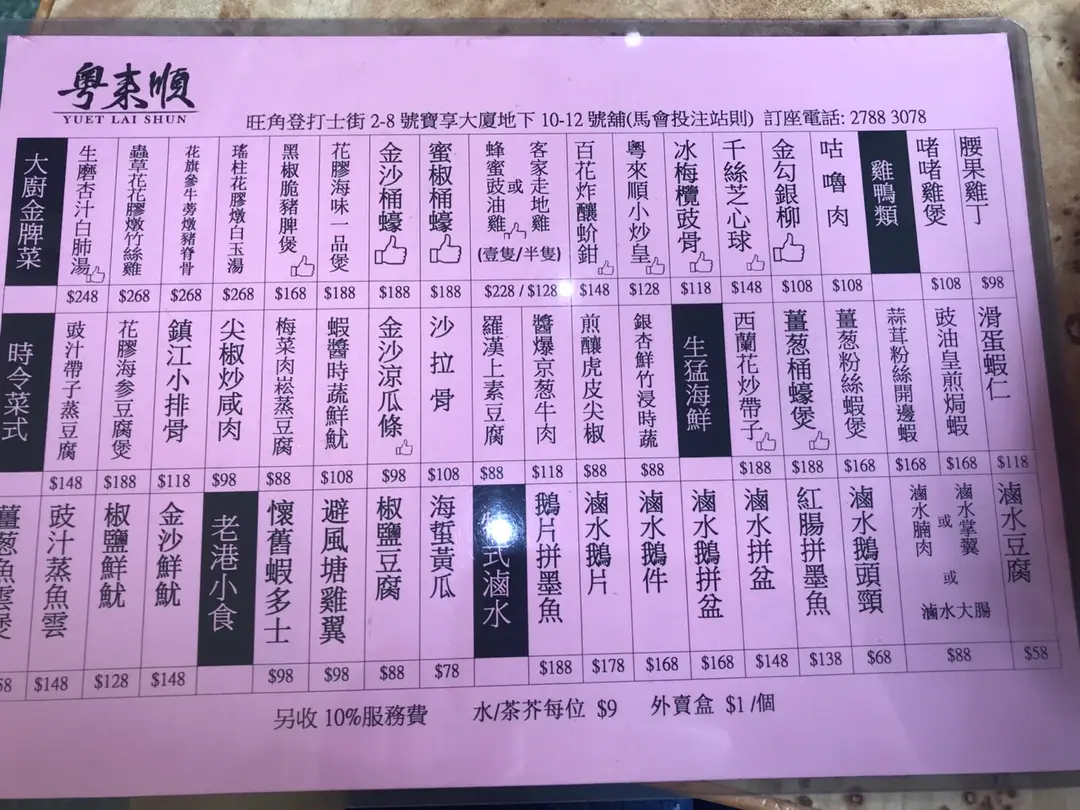 粵來順
YUET LAI SHUN
旺角登打士街 2-8 號寶享大廈地下 10-12 號舖(馬會投注站則) 訂座電話: 2788 3078
大廚金牌菜
生磨杏汁白肺湯 $248
蟲草花花膠燉竹絲雞 $268
花旗參牛蒡燉豬脊骨 $268
瑤柱花膠燉白玉湯 $268
黑椒脆豬脾煲 $168
花膠海味一品煲 $188
金沙桶蠔 $188
蜜椒桶蠔 $188
蜂蜜豉油雞 或 客家走地雞 (壹隻/半隻) $228 / $128
百花炸釀蚧鉗 $148
粵來順小炒皇 $128
冰梅欖豉骨 $118
千絲芝心球 $148
金勾銀柳 $108
咕嚕肉 $108
雞鴨類
啫啫雞煲 $108
腰果雞丁 $98
時令菜式
豉汁帶子蒸豆腐 $148
花膠海參豆腐煲 $188
鎮江小排骨 $118
尖椒炒咸肉 $98
梅菜肉崧蒸豆腐 $88
蝦醬時蔬鮮魷 $108
金沙涼瓜條 $98
沙拉骨 $108
羅漢上素豆腐 $88
醬爆京葱牛肉 $118
煎釀虎皮尖椒 $88
銀杏鮮竹浸時蔬 $88
生猛海鮮
西蘭花炒帶子 $188
薑葱桶蠔煲 $188
薑葱粉絲蝦煲 $168
蒜茸粉絲開邊蝦 $168
豉油皇煎焗蝦 $168
滑蛋蝦仁 $118
薑葱魚雲煲
豉汁蒸魚雲 $148
椒鹽鮮魷 $128
金沙鮮魷 $148
老港小食
懷舊蝦多士 $98
避風塘雞翼 $98
椒鹽豆腐 $88
海蜇黃瓜 $78
式滷水
鵝片拼墨魚 $188
滷水鵝片 $178
滷水鵝件 $168
滷水鵝拼盆 $168
滷水拼盆 $148
紅腸拼墨魚 $138
滷水鵝頭頸 $68
滷水腩肉 或 滷水掌翼 或 滷水大腸 $88
滷水豆腐 $58
另收 10%服務費 水/茶芥每位 $9 外賣盒 $1 /個